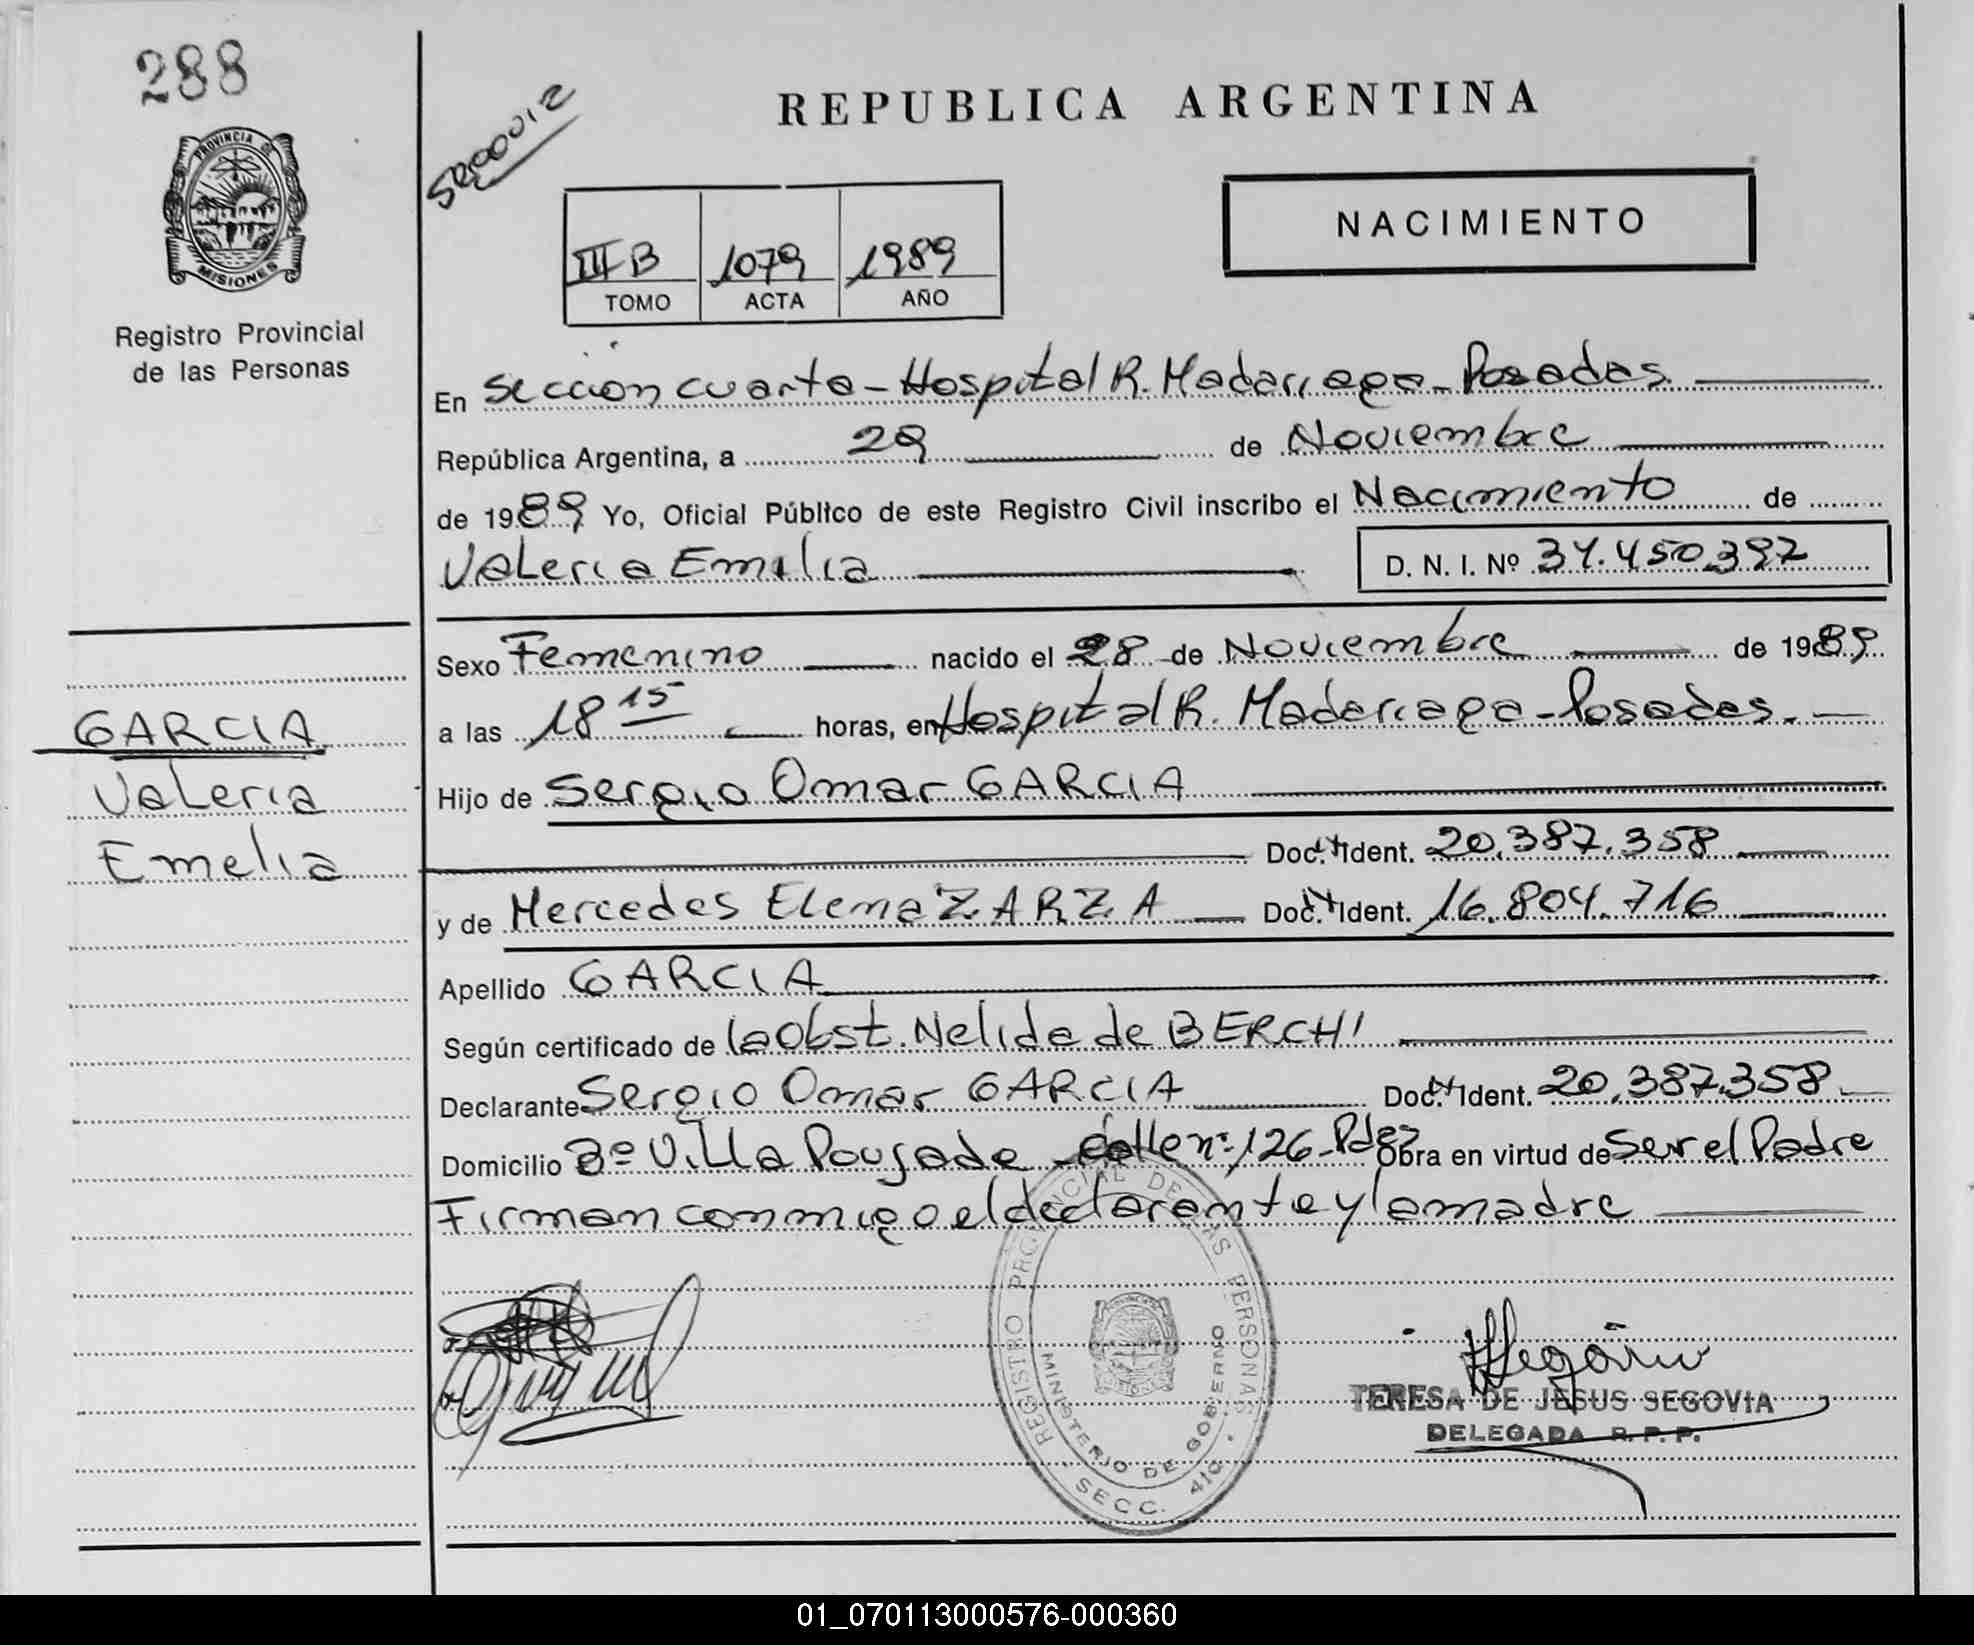 288
PROVINCIA DE
MISIONES
Registro Provincial
de las Personas
REPUBLICA ARGENTINA
NACIMIENTO
III B 1079 1989
TOMO ACTA AÑO
En Sección cuarta - Hospital R. Madariaga - Posadas
República Argentina, a 29 de Noviembre
de 1989 Yo, Oficial Público de este Registro Civil inscribo el Nacimiento de
Valeria Emilia D. N. I. Nº 34.450.397
Sexo Femenino nacido el 28 de Noviembre de 1989
a las 18 15 horas, en Hospital R. Madariaga - Posadas.
GARCIA
Valeria
Emelia
Hijo de Sergio Omar GARCIA
Doc. Ident. 20.387.358
y de Mercedes Elena ZARZA Doc. Ident. 16.804.716
Apellido GARCIA
Según certificado de la Obst. Nelida de BERCHI
Declarante Sergio Omar GARCIA Doc. Ident. 20.387.358
Domicilio Bº Villa Poujade calle nº 126 - Pdas Obra en virtud de Ser el Padre
Firman conmigo el declarante y la madre
REGISTRO PROVINCIAL DE LAS PERSONAS
MINISTERIO DE GOBIERNO
SECC. 4ta.
TERESA DE JESUS SEGOVIA
DELEGADA R. P. P.
01_070113000576-000360